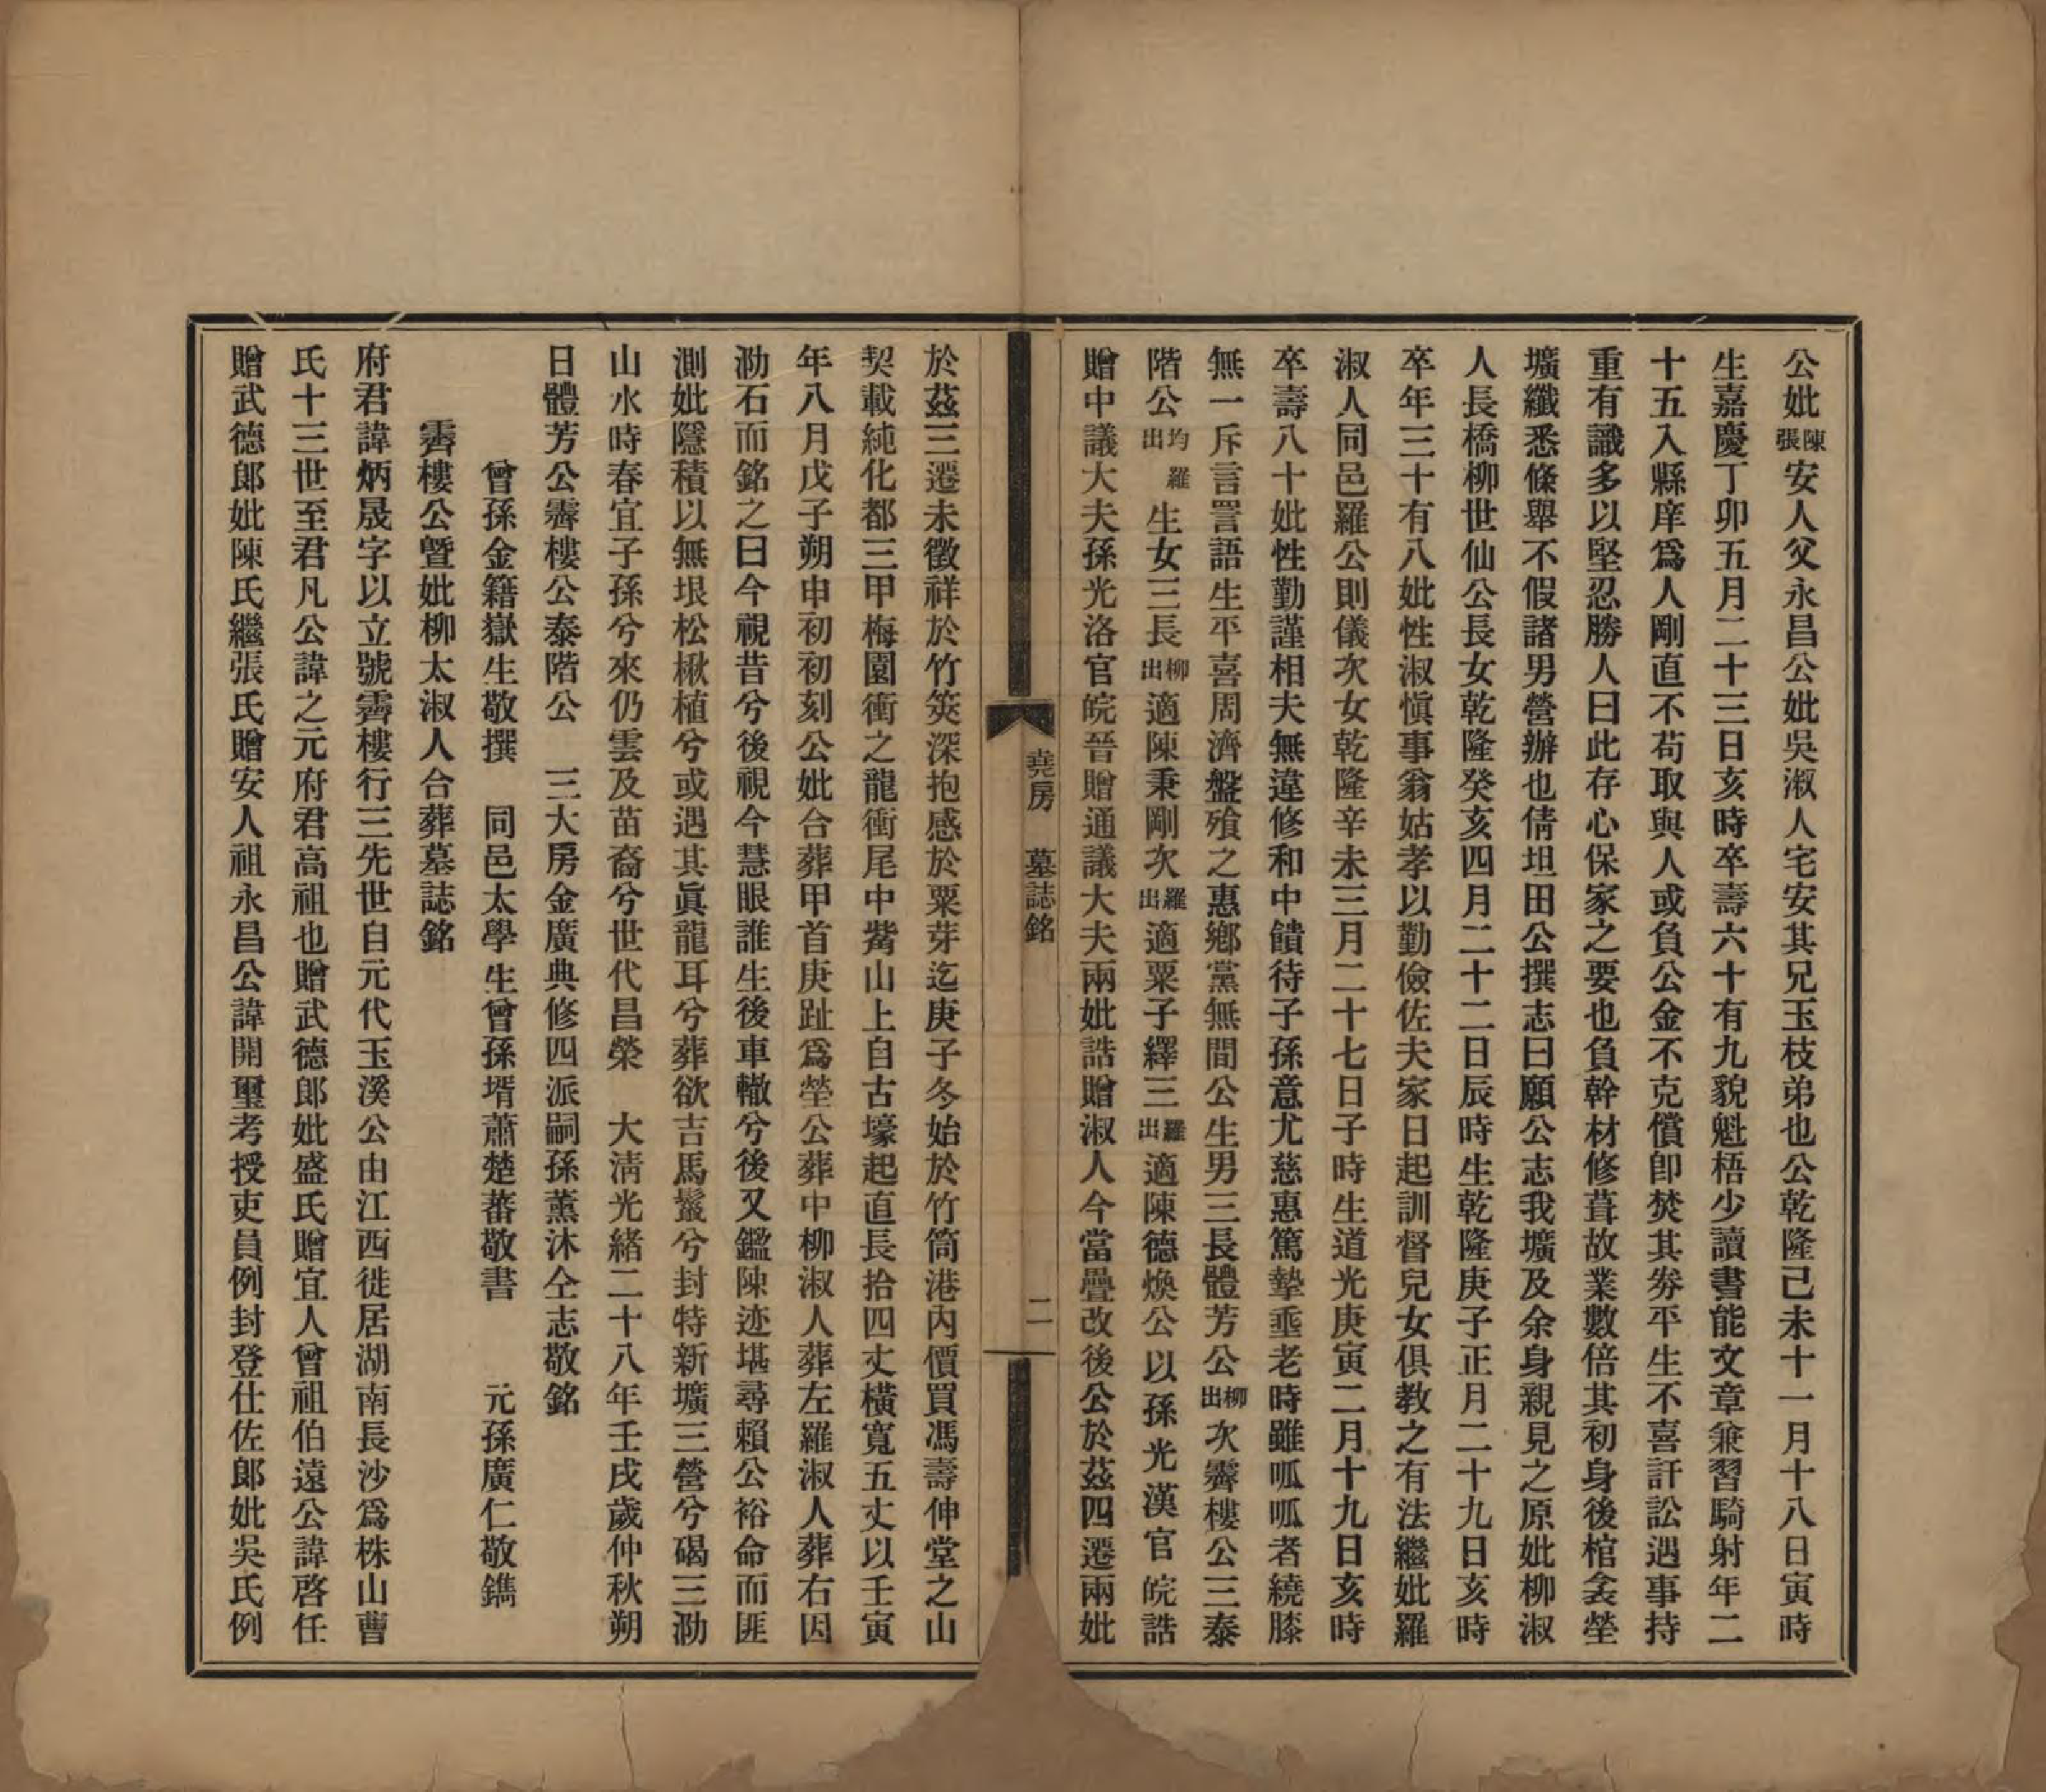 公妣陳張安人父永昌公妣吳淑人宅安其兄玉枝弟也公乾隆己未十一月十八日寅時
生嘉慶丁卯五月二十三日亥時卒壽六十有九貌魁梧少讀書能文章兼習騎射年二
十五入縣庠爲人剛直不苟取與人或負公金不克償卽焚其券平生不喜訐訟遇事持
重有識多以堅忍勝人曰此存心保家之要也負幹材修葺故業數倍其初身後棺衾塋
壙纖悉條舉不假諸男營辦也倩坦田公撰志曰願公志我壙及余身親見之原妣柳淑
人長橋柳世仙公長女乾隆癸亥四月二十二日辰時生乾隆庚子正月二十九日亥時
卒年三十有八妣性淑愼事翁姑孝以勤儉佐夫家日起訓督兒女俱教之有法繼妣羅
淑人同邑羅公則儀次女乾隆辛未三月二十七日子時生道光庚寅二月十九日亥時
卒壽八十妣性勤謹相夫無違修和中饋待子孫意尤慈惠篤摯垂老時雖呱呱者繞膝
無一斥言詈語生平喜周濟盤飱之惠鄉黨無間公生男三長體芳公柳出次霽樓公三泰
階公均羅出生女三長柳出適陳秉剛次羅出適粟子繹三羅出適陳德煥公以孫光漢官皖誥
贈中議大夫孫光洛官皖晉贈通議大夫兩妣誥贈淑人今當疊改後公於茲四遷兩妣
堯房　墓誌銘　二
於茲三遷未徵祥於竹筴深抱感於粟芽迄庚子冬始於竹筒港內價買馮壽伸堂之山
契載純化都三甲梅園衝之龍衝尾中觜山上自古壕起直長拾四丈橫寬五丈以壬寅
年八月戊子朔申初初刻公妣合葬甲首庚趾爲塋公葬中柳淑人葬左羅淑人葬右因
泐石而銘之曰今視昔兮後視今慧眼誰生後車轍兮後又鑑陳迹堪尋賴公裕命而匪
測妣隱積以無垠松楸植兮或遇其眞龍耳兮葬欲吉馬鬣兮封特新壙三營兮碣三泐
山水時春宜子孫兮來仍雲及苗裔兮世代昌榮　大淸光緒二十八年壬戌歲仲秋朔
日體芳公霽樓公泰階公　三大房金廣典修四派嗣孫薰沐仝志敬銘
曾孫金籍嶽生敬撰　同邑太學生曾孫壻蕭楚蕃敬書　元孫廣仁敬鐫
霽樓公曁妣柳太淑人合葬墓誌銘
府君諱炳晟字以立號霽樓行三先世自元代玉溪公由江西徙居湖南長沙爲株山曹
氏十三世至君凡公諱之元府君高祖也贈武德郎妣盛氏贈宜人曾祖伯遠公諱啓任
贈武德郎妣陳氏繼張氏贈安人祖永昌公諱開璽考授吏員例封登仕佐郎妣吳氏例